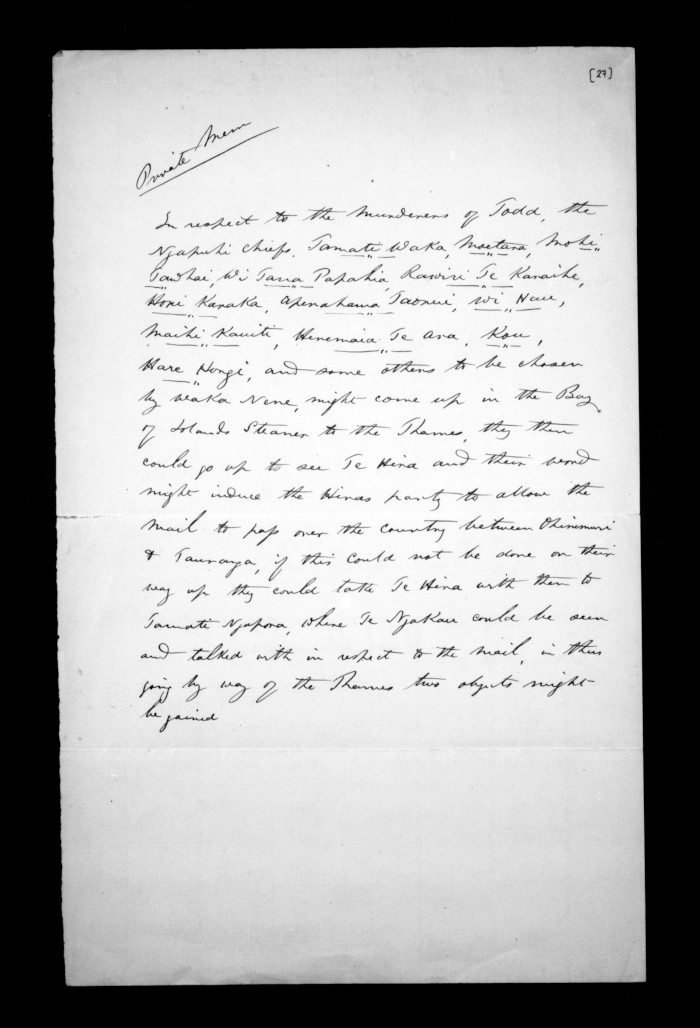 [27]
Private Mem
In respect to the Murderers of Todd, the
Ngapuhi Chiefs. Tamati Waka, Moetara, Mohi
Tawhai, Wi Tana Papahia, Rawiri Te Karaihe,
Hori Karaka, Aperahama Taonui, Wi Hau,
Maihi Kawiti, Heremaia Te Ara, Kou,
Hare Hongi, and some others to be chosen
by Waka Nene, might come up in the Bay
of Islands Steamer to the Thames, they then
could go up to see Te Hira and their word
might induce the Hiras party to allow the
Mail to pass over the country between Ohinimuri
& Tauranga, if this could not be done on their
way up they could take Te Hira with them to
Tamati Ngapora, where Te Ngakau could be seen
and talked with in respect to the Mail, in thus
going by way of the Thames two objects might
be gained